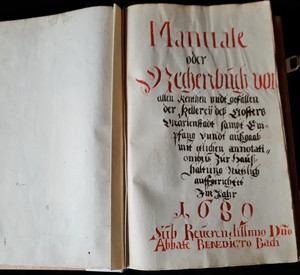 Manuale
oder
Rechenbuch von
allen Renthen undt gefällen
der Kellerey des Closters
Marienstadt sampt Em-
pfang vundt außgaab
mit etlichen annotati-
onibus zur Hauß-
haltung nutzlich
auffgerichtet
Im Jahr
1680
Sub Reverendissimo Dño
Abbate BENEDICTO Bach